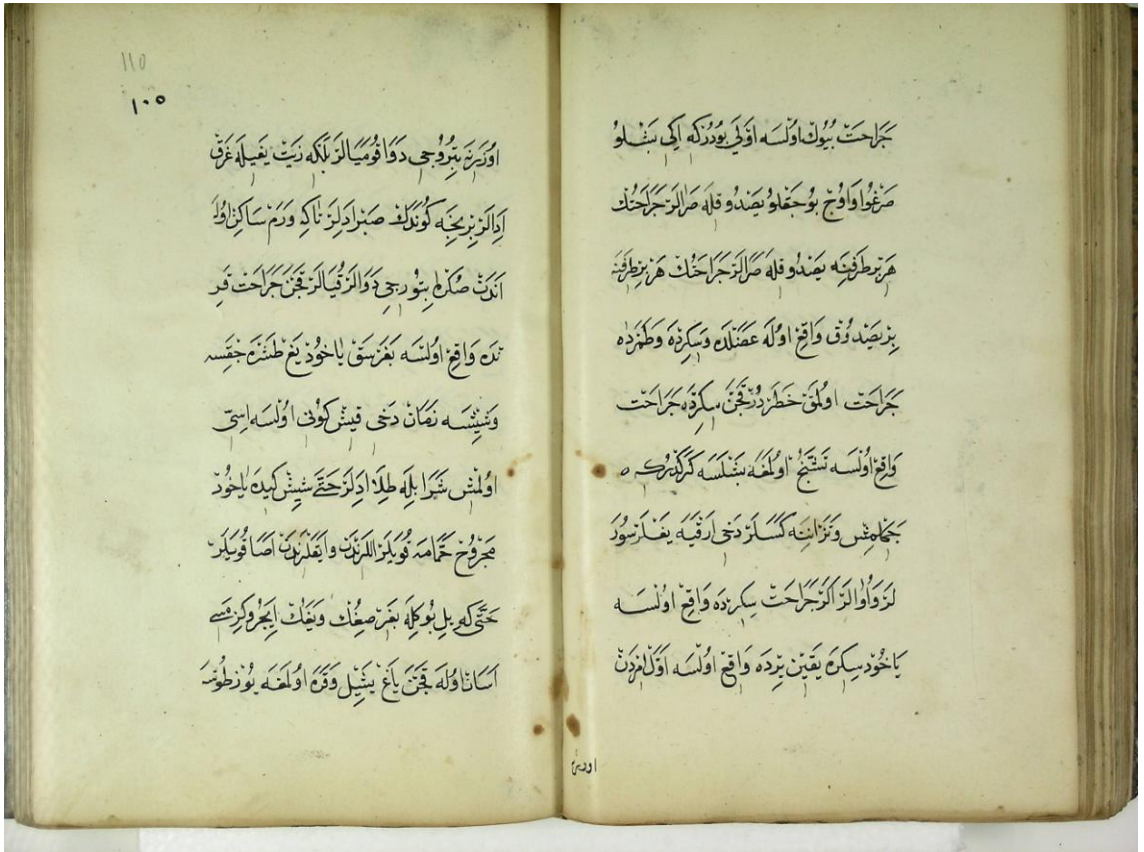 جَرَاحَتْ بُيُوكْ اُولْسَه اَوْلَي بُودُرْكِه اِكِي بَشْلُو
صَرْغُوا وَاُوچْ بُوجَقْلُو يَصْدُوقْلَه صَرَالَرْ جَرَاحَتُكْ
هَرْ بِرْ طَرَفِنَه يَصْدُوقْلَه صَرَالَرْ جَرَاحَتُكْ هَرْ بِرْ طَرَفِنَه
بِرْ يَصْدُوقْ وَاقِعْ اُولَه عَضَلَدَه وَسِكِرْدَه وَطَمَرْدَه
جَرَاحَتْ اُولْمَقْ خَطَرْدُرْ قَچَنْ سِكِرْدَه جَرَاحَتْ
وَاقِعْ اُولْسَه تَشَنُّجْ اُولْمَغَه بَشْلَسَه كَرَكْدُرْكِه
وَتَرَانِتَه كَسَلَرْ دَخِي اَرْقَيَه يَغْلَرْ سُورَ
لَرْ وَاُوَالَرْ اَكَرْ جَرَاحَتْ سِكِرْدَه وَاقِعْ اُولْسَه
يَاخُودْ سِكِرَه يَقِينْ يِرْدَه وَاقِعْ اُولْسَه اَوَّلْ اَمْرْدَنْ
اوزرينه
110
١٠٥
اُوزَرِنَه بِتُرُوجِي دَوَا قُومَيَالَرْ بَلْكِه زَيْتْ يَغِيلَه غَرْقْ
اِدَالَرْ بِرْنِجَه كُونْدَكْ صَبْر اِدَلَرْ تَاكِه وَرَمْ سَاكِنْ اُولَا
اَنْدَنْ صُكْرَه بِتُورِجِي دَوَالَرْ قُيَالَرْ قَچَنْ جَرَاحَتْ قَرِ
نْدَه وَاقِعْ اُولْسَه بَغَرْسَقْ يَاخُودْ يَغْ طَشْرَه چِقْسَه
وَشِيشْسَه نَفَانْ دَخِي قِيشْ كُونِي اُولْسَه اِسِّي
اُولْمِشْ شَرَابِلَه طِلَا اِدَلَرْ حَتَّي شِيشْ كِيدَه يَاخُودْ
مَجْرُوحْ حَمَّامَه قُويَلَرْ اَللَرِنْدَنْ وَاَيَقْلَرِنْدَنْ اَصَا قُويَلَرْ
حَتَّي كِه بِلِ بُوكِلَه بَغَرْصُغُكْ وَيَغَكْ اِيچَرُو كِرْمَسِي
اَسَانْ اُولَه قَچَنْ يَاغْ يَشِيلْ وَقَرَه اُولْمَغَه يُوزْ طُوتْسَه